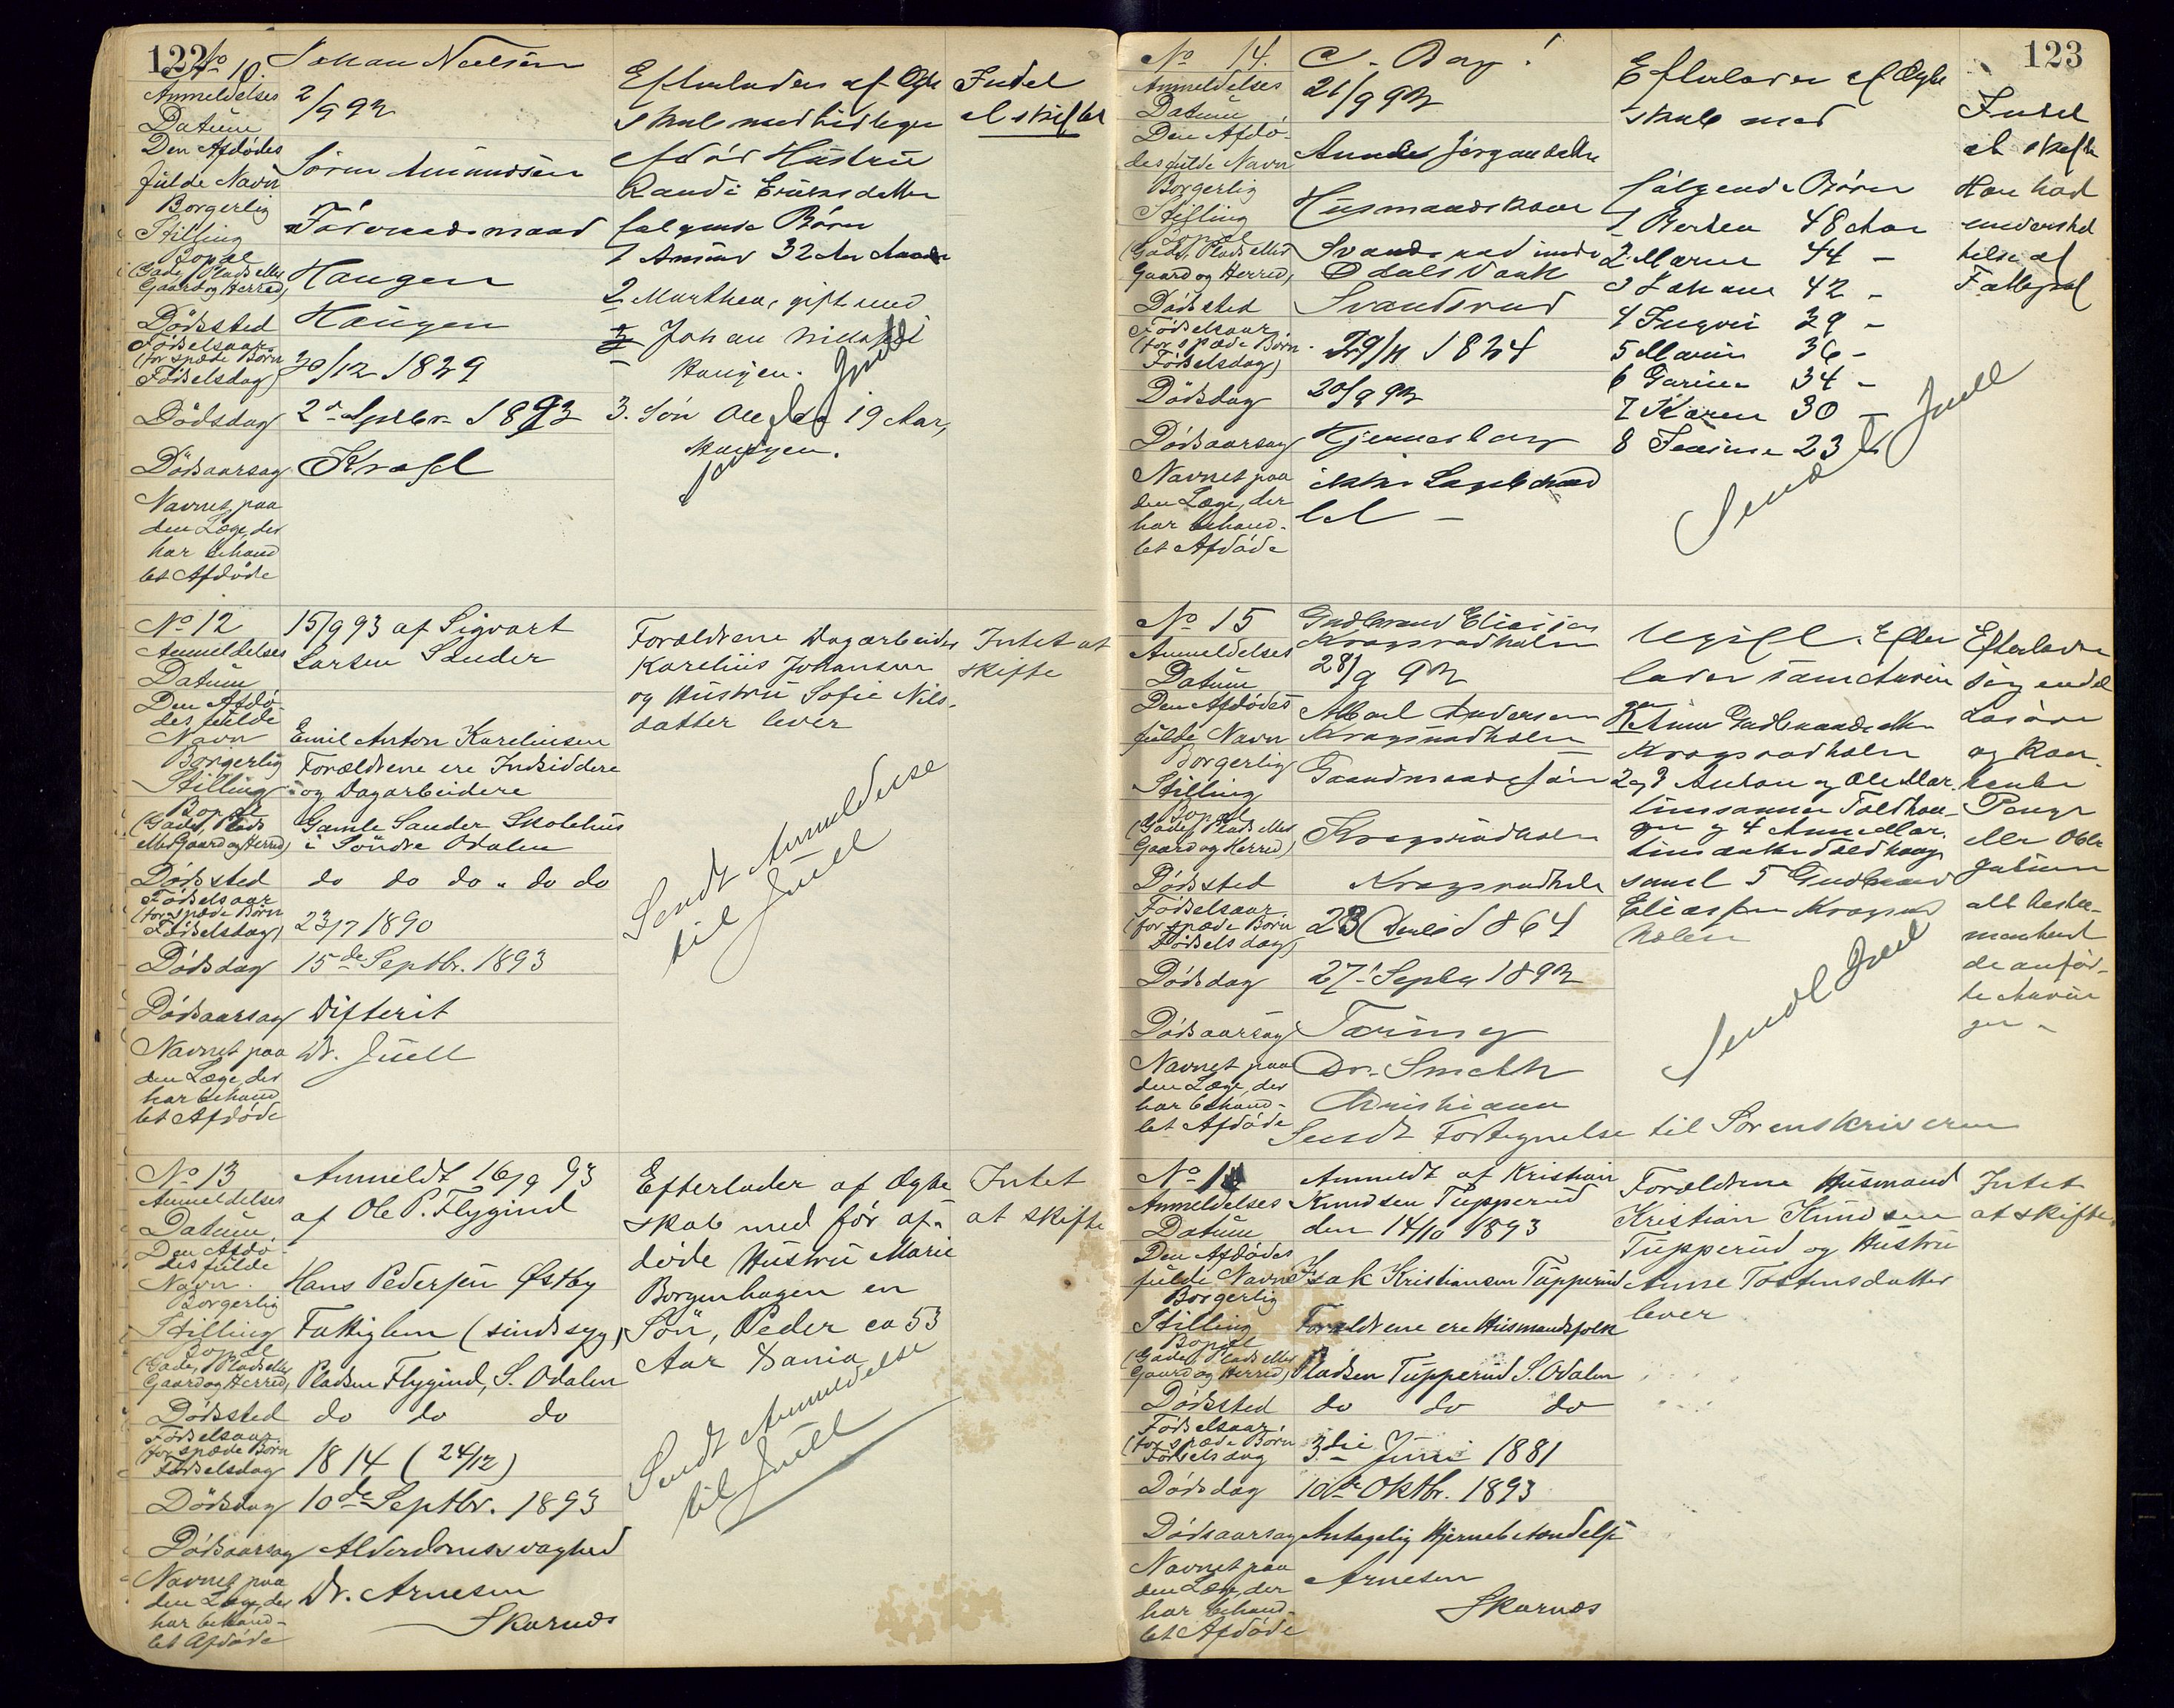 122
No 10.
Johan Neelsen
Anmeldelses
Datum
2/9 93
Den Afdødes
fulde Navn
Sören Amundsen
Borgerlig
Stilling
Föderaadsmand
Bopæl
(Gade, Plads eller
Gaard og Herred)
Haugen
Dödssted
Haugen
Födselsaar
(for spæde Börn
Födselsdag)
30/12 1829
Dödsdag
2d Septbr 1893
Dödsaarsag
Kræft
Navnet paa
den Læge, der
har behand
let Afdöde
Efterlader af Ægte
skab med tidligere
afdöd Hustru
Randi
følgende Börn
1 Amund 32 Aar
2 Marthea, gift med
Johan
Haugen.
3. Sön Ole 19 Aar,
Haugen.
Sendt Juell
Intet
at skifte
No 12
Anmeldelses
Datum
15/9 93 af Sigvart
Larsen Sander
Den Afdö-
des fulde
Navn
Emil Anton Kareliusen
Borgerlig
Stilling
Forældrene ere Indsiddere
og Dagarbeidere
Bopæl
(Gade, Plads
eller Gaard og Herred)
Gamle Sander Skolehus
i Söndre Odalen
Dödssted
do do do " do do
Födselsaar
(for spæde Börn
Födselsdag)
23/7 1890
Dödsdag
15de Septbr. 1893
Dödsaarsag
Difterit
Navnet paa
den Læge, der
har behand
let Afdöde
Dr. Juell
Forældrene Dagarbeider
Karelius Johansen
og Hustru Sofie Nils-
datter lever
Sendt Anmeldelse
til Juell
Intet at
skifte
No 13
Anmeldelses
Datum.
Anmeldt 16/9 93
af Ole P. Flygind
Den Afdö-
des fulde
Navn.
Hans Pedersen Østby
Borgerlig
Stilling
Fattiglem (sindssyg)
Bopæl
(Gade, Plads eller
Gaard og Herred)
Pladsen Flygind, S. Odalen
Dödssted
do do do
Födselsaar
(for spæde Börn
Födselsdag
1814 (24/12)
Dödsdag
10de Septbr. 1893
Dödsaarsag
Alderdomssvaghed
Navnet paa
den Læge, der
har behand-
let Afdöde
Dr. Arnesen
Skarnæs
Efterlader af Ægte
skab med för af-
döde Hustru Marie
Borgenhagen en
Sön, Peder ca 53
Aar
Sendt Anmeldelse
til Juell
Intet
at skifte
123
No 14.
Anmeldelses
Datum
21/9 93
Den Afdö-
des fulde Navn
Anne Jörgensdatter
Borgerlig
Stilling
Husmandskone
Bopæl
(Gade, Plads eller
Gaard og Herred)
Svandsrud
Odals
Dödssted
Svandsrud
Födselsaar
(for spæde Börn
Födselsdag)
Dödsdag
20/9 93
Dödsaarsag
Navnet paa
den Læge, der
har behand-
let Afdöde
ikke Lægebehand
let -
Efterlader af Ægte
skab med
fölgende Börn
1 Berthea 48 Aar
2 Maren 44 -
3 Johane 42 -
4 Ingvei 39 -
5 Marie 36 -
6 Garine 34 -
7 Karen 30 -
8 23
Sendt Juell
Intet
at skifte
Har havt
understöt
telse af
No 15
Gudbrand Eliassen
Kragsrudholen
Anmeldelses
Datum
28/9 93
Den Afdödes
fulde Navn
Andersen
Kragsrudholen
Borgerlig
Stilling
Gaardmandssön
Bopæl
(Gade, Plads eller
Gaard og Herred)
Kragsrudholen
Dödssted
Kragsrudholen
Födselsaar
(for spæde Börn
Födselsdag)
1864
Dödsdag
27 Septbr 1893
Dödsaarsag
Tæring
Navnet paa
den Læge, der
har behand-
let Afdöde
Dr. Smith
Kristiania
Ugift. Efter
lader som Arvin
ger
Anne Gudbrandsdatter
Kragsrudholen
2 og 3 Anton og Ole Mar-
tinsönner
og 4 Anne Mar-
tinsdatter
samt 5 Gudbrand
Eliassen Kragsrud
holen
Sendt Juell
Efterlader
sig endel
Lösöre
og Kon-
tante
Penge
eller Obli-
gationer
alt testa-
menteret
de anför-
te Arvin
ger -
Sendt Fortegnelse til Sorenskriveren
Anmeldelses
Datum
Anmeldt af Kristian
Knudsen Tupperud
den 14/10 1893
Den Afdödes
fulde Navn
Isak Kristiansen Tupperud
Borgerlig
Stilling
Forældrene ere Husmandsfolk
Bopæl
(Gade, Plads eller
Gaard og Herred)
Pladsen Tupperud S. Odalen
Dödssted
do do do
Födselsaar
(for spæde Börn
Födselsdag
3die Juni 1881
Dödsdag
10de Oktbr. 1893
Dödsaarsag
Antagelig Hjernebetændelse
Navnet paa
den Læge, der
har behand-
let Afdöde
Arnesen
Skarnæs
Forældrene Husmand
Kristian Knudsen
Tupperud og Hustru
Anne Tostensdatter
lever
Intet
at skifte.